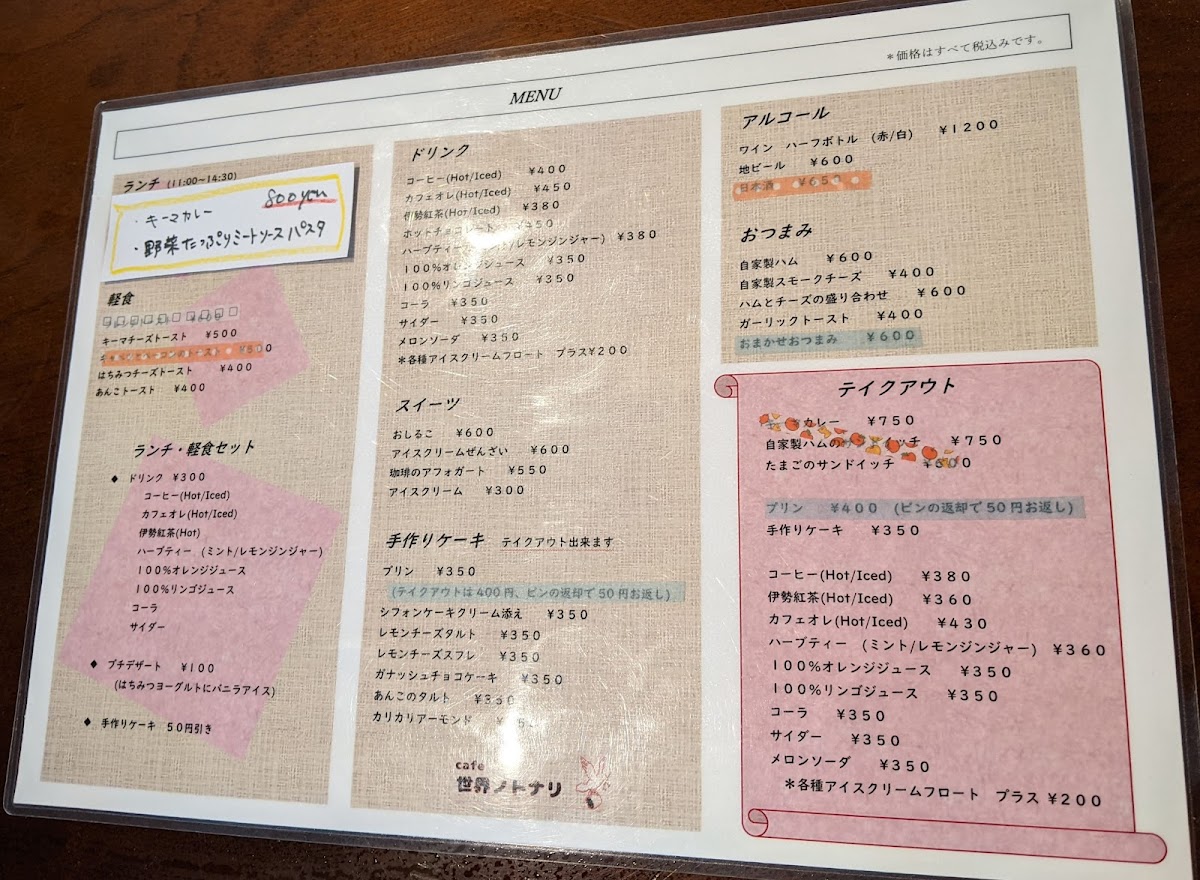 MENU
*価格はすべて税込みです。
ランチ (11:00~14:30)
・キーマカレー 800yen
・野菜たっぷりミートソースパスタ
軽食
キーマチーズトースト ¥500
はちみつチーズトースト ¥400
あんこトースト ¥400
ランチ・軽食セット
◆ ドリンク ¥300
コーヒー(Hot/Iced)
カフェオレ(Hot/Iced)
伊勢紅茶(Hot)
ハーブティー (ミント/レモンジンジャー)
100%オレンジジュース
100%リンゴジュース
コーラ
サイダー
◆ プチデザート ¥100
(はちみつヨーグルトにバニラアイス)
◆ 手作りケーキ 50円引き
ドリンク
コーヒー(Hot/Iced) ¥400
カフェオレ(Hot/Iced) ¥450
伊勢紅茶(Hot/Iced) ¥380
ホットチョコレート ¥450
ハーブティー (ミント/レモンジンジャー) ¥380
100%オレンジジュース ¥350
100%リンゴジュース ¥350
コーラ ¥350
サイダー ¥350
メロンソーダ ¥350
*各種アイスクリームフロート プラス¥200
スイーツ
おしるこ ¥600
アイスクリームぜんざい ¥600
珈琲のアフォガート ¥550
アイスクリーム ¥300
手作りケーキ テイクアウト出来ます
プリン ¥350
(テイクアウトは400円、ビンの返却で50円お返し)
シフォンケーキクリーム添え ¥350
レモンチーズタルト ¥350
レモンチーズスフレ ¥350
ガナッシュチョコケーキ ¥350
あんこのタルト ¥350
カリカリアーモンド
cafe
世界ノトナリ
アルコール
ワイン ハーフボトル (赤/白) ¥1200
地ビール ¥600
日本酒 ¥650
おつまみ
自家製ハム ¥600
自家製スモークチーズ ¥400
ハムとチーズの盛り合わせ ¥600
ガーリックトースト ¥400
おまかせおつまみ ¥600
テイクアウト
カレー ¥750
自家製ハムの ¥750
たまごのサンドイッチ
プリン ¥400 (ビンの返却で50円お返し)
手作りケーキ ¥350
コーヒー(Hot/Iced) ¥380
伊勢紅茶(Hot/Iced) ¥360
カフェオレ(Hot/Iced) ¥430
ハーブティー (ミント/レモンジンジャー) ¥360
100%オレンジジュース ¥350
100%リンゴジュース ¥350
コーラ ¥350
サイダー ¥350
メロンソーダ ¥350
*各種アイスクリームフロート プラス ¥200